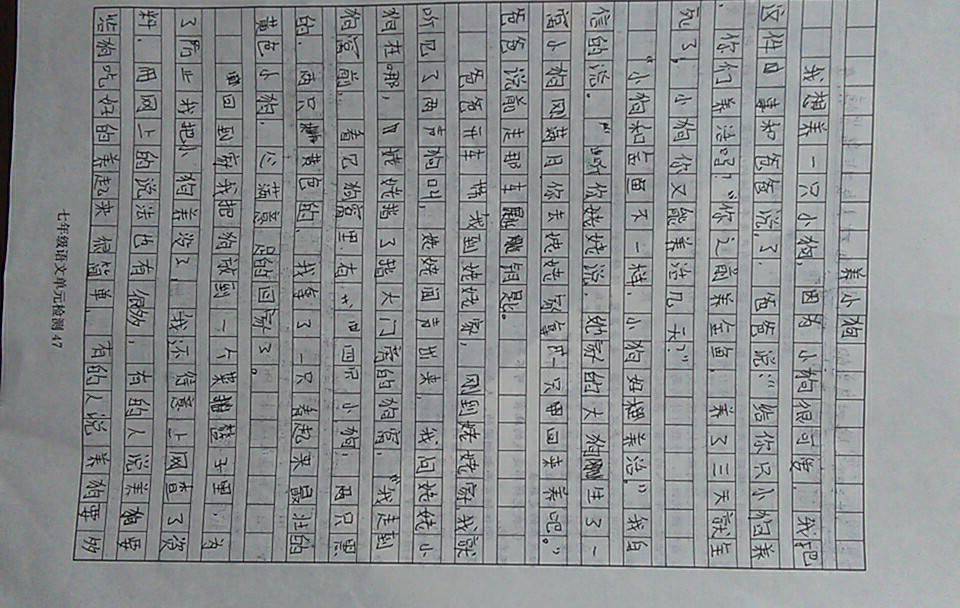 养小狗
我想养一只小狗,因为小狗很可爱。我把
这件事和爸爸说了,爸爸说:“给你只小狗养
,你们养活吗?”你之前养金鱼,养了三天就全
死了,小狗你又能养活几天?”
“小狗和金鱼不一样,小狗好养活。”我自
信的说。“听你姥姥说,她家的大狗生了一
窝小狗刚满月你去姥姥家拿一只回来养吧。”
爸爸说能走那车钥匙。
爸爸开车带我到姥姥家,刚到姥姥家我就
听见了两声狗叫,姥姥闻声出来,我问姥姥小
狗在哪,姥姥指了指大门旁的狗窝,“我走到
狗窝前,看见狗窝里有四只小狗,两只黑
的,两只黄色的,我拿了一只看起来最壮的
黄色小狗,心满意足的回家了。
回到家我把狗放到一个果子里,为
了防止我把小狗养没了,我还特意上网查了次
料,网上的说法也有很多,有的人说养狗要
些狗吃好的养起来很简单,有的人说养狗要多
七年级语文单元检测 47